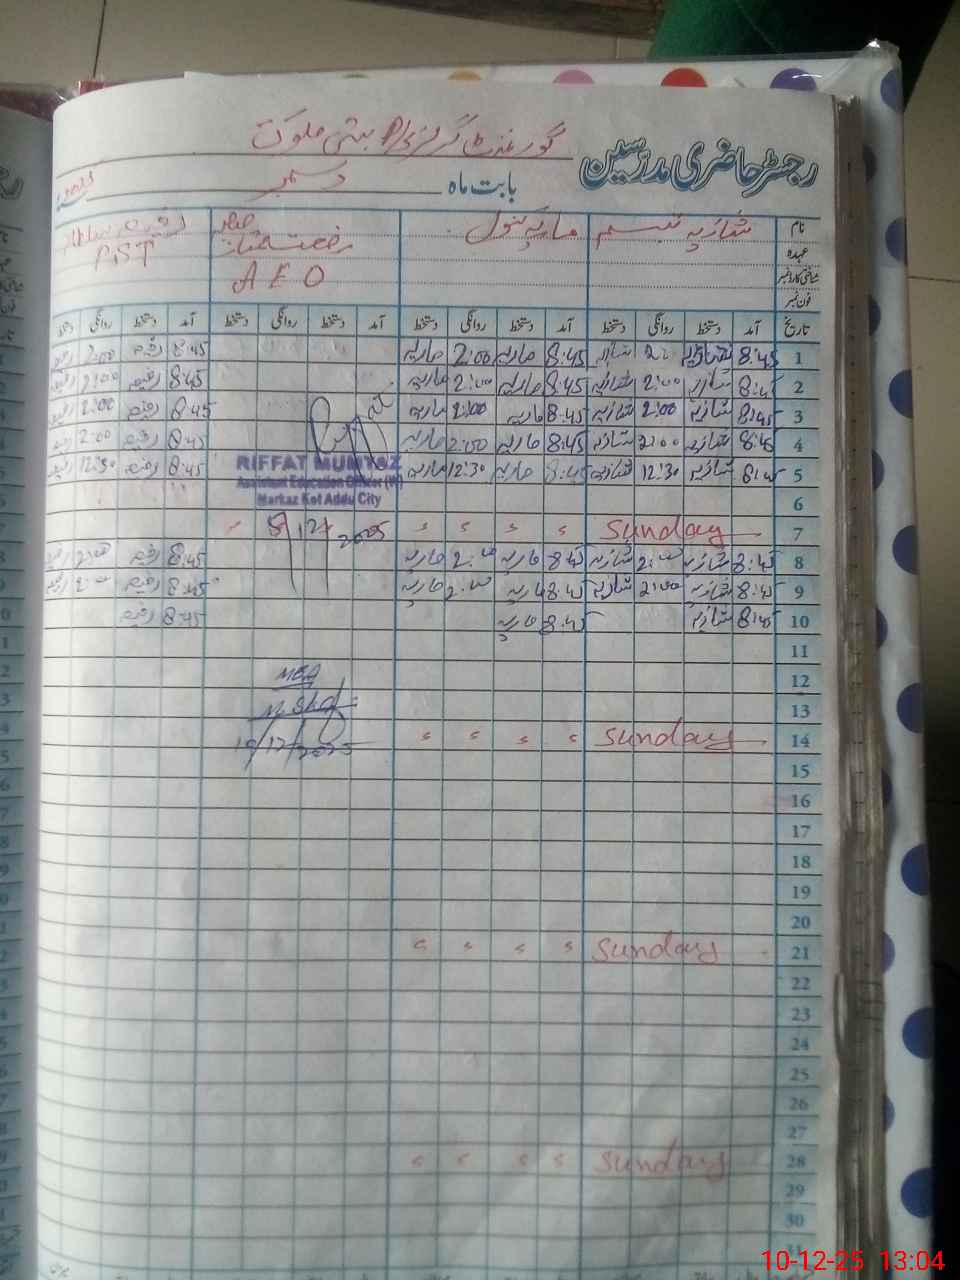 رجسٹر حاضری مدرسین گورنمنٹ گرلز P/S بستی ملوک
بابت ماہ دسمبر
نام شازیہ تبسم ماریہ کنول رفعت ممتاز
عہدہ AEO PST
شناختی کارڈ نمبر
فون نمبر
تاریخ آمد دستخط روانگی دستخط آمد دستخط روانگی دستخط آمد دستخط روانگی دستخط آمد دستخط روانگی دستخط
1 8:45 شازیہ شازیہ 8:45 ماریہ 2:00 ماریہ 8:45 2:00
2 8:45 شازیہ 2:00 شازیہ 8:45 ماریہ 2:00 ماریہ 8:45 2:00
3 8:45 شازیہ 2:00 شازیہ 8:45 ماریہ 2:00 ماریہ 8:45 2:00
4 8:45 شازیہ 2:00 شازیہ 8:45 ماریہ 2:00 ماریہ 8:45 2:00
5 8:45 شازیہ 12:30 شازیہ 8:45 ماریہ 12:30 ماریہ 8:45 12:30
RIFFAT MUMTAZ
Assistant Education Officer (W)
Markaz Kot Addu City
6
7 Sunday " " " " 8/12/2025
8 8:45 شازیہ 2:00 شازیہ 8:45 ماریہ 2:00 ماریہ 8:45 2:00
9 8:45 شازیہ 2:00 شازیہ 8:45 ماریہ 2:00 ماریہ 8:45 2:00
10 8:45 شازیہ 8:45 ماریہ 8:45
11
12 MEA
13
14 Sunday " " " " 10/12/2025
15
16
17
18
19
20
21 Sunday " " " "
22
23
24
25
26
27
28 Sunday " " " "
29
30
31
10-12-25 13:04